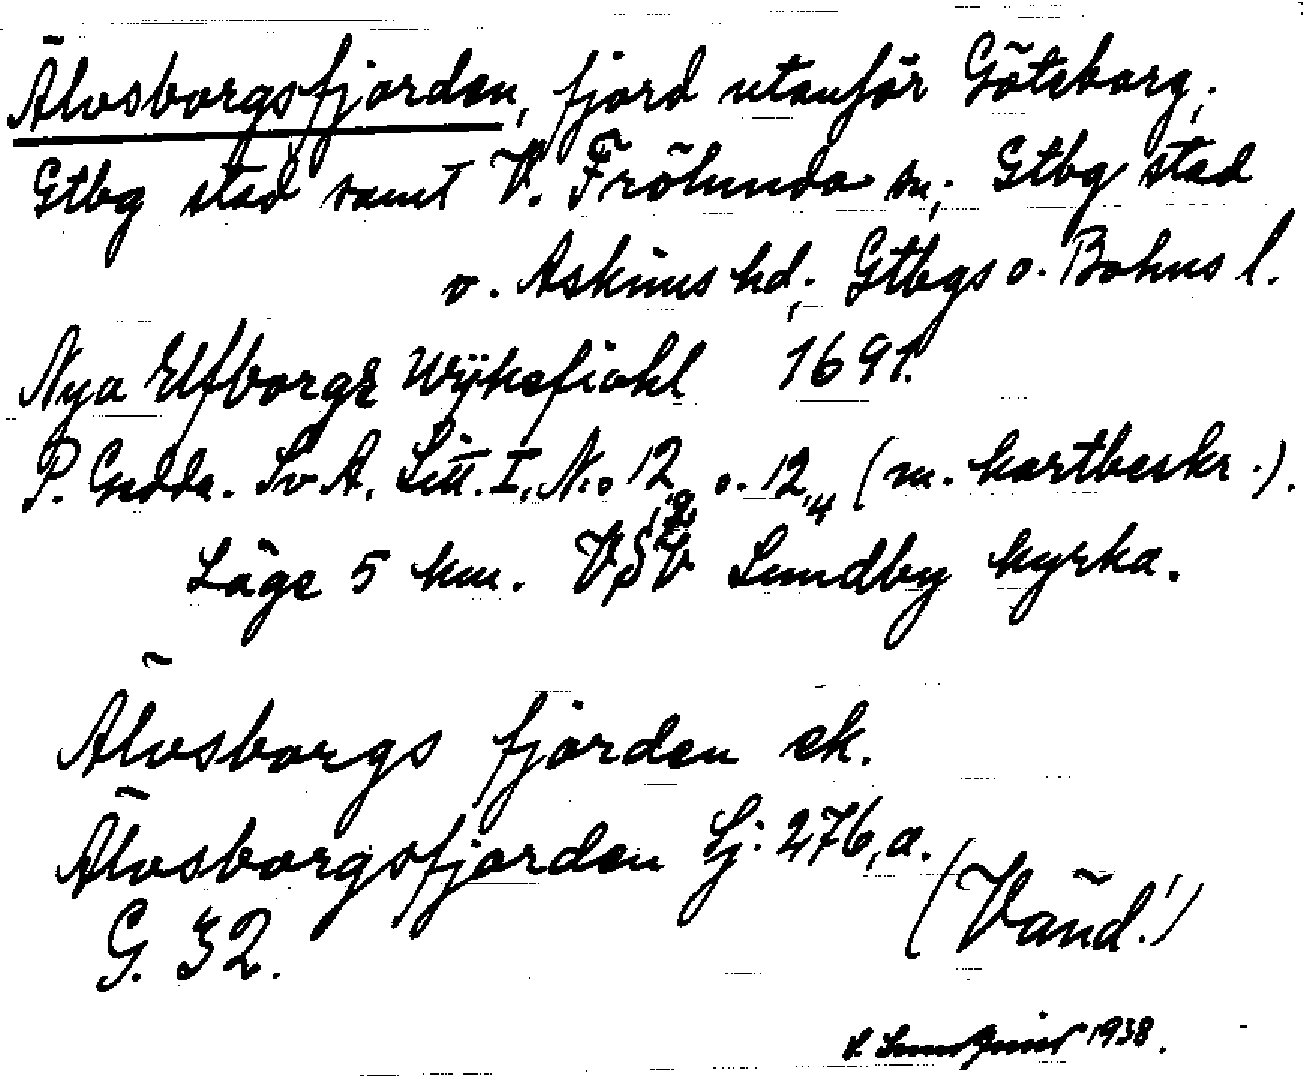 Älvsborgsfjorden, fjord utanför Göteborg;
Gtbg stad samt V. Frölunda sn; Gtbg stad
o. Askims hd; Gtbgs o. Bohus l.
Nya Elfborgs Wÿksfiohl 1691.
P. Gedda. Sv A. Litt. I, No 12,2 o. 12,4 (m. kartbeskr.).
Läge 5 km. VSV Lundby kyrka.
Älvsborgs fjorden ek.
Älvsborgsfjorden Lj: 276,a.
G. 32.
(Vänd!)
1938.